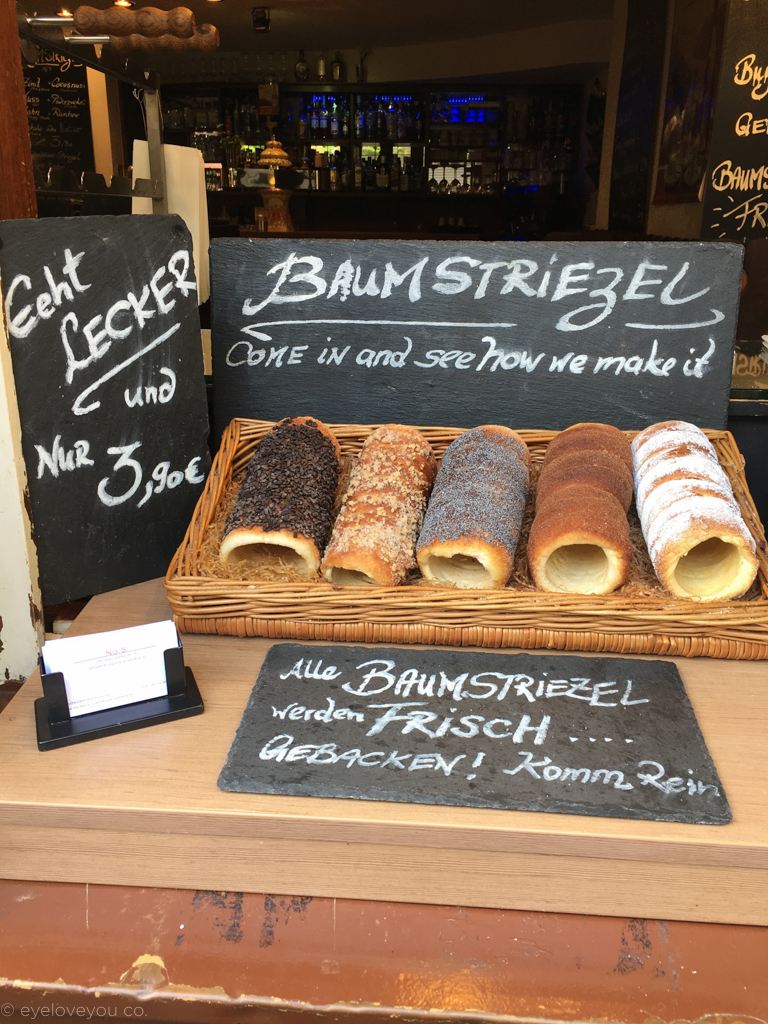 Echt
LECKER
und
NUR 3,90€
BAUMSTRIEZEL
COME iN and see how we make it
Alle BAUMSTRIEZEL
werden FRISCH ....
GEBACKEN! Komm Rein
No.5
BAUMS
FR
© eyeloveyou co.